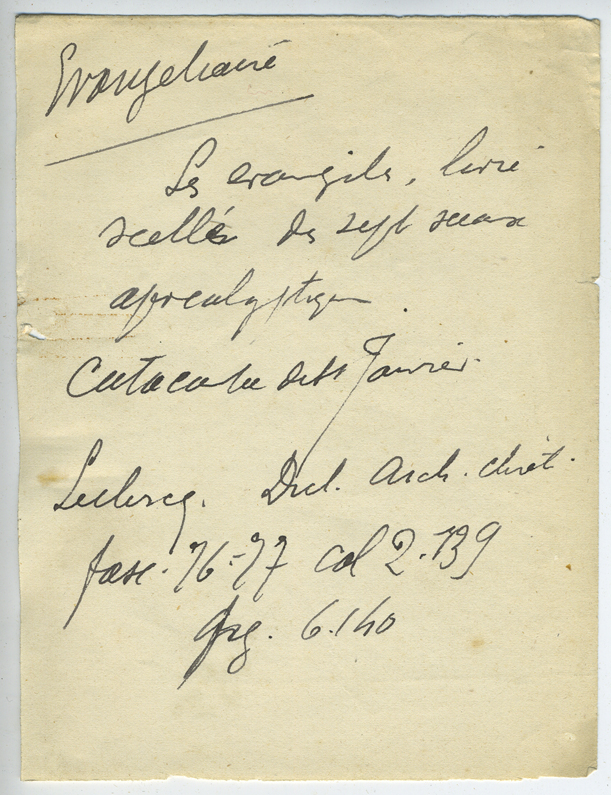 Evangeliaire
Les evangiles, livre
scellés des sept sceaux
apocalyptiques.
Catacombe de St Janvier.
Leclercq. Dict. Arch. chrét.
fasc. 76-77 col 2.139
fig. 6.140